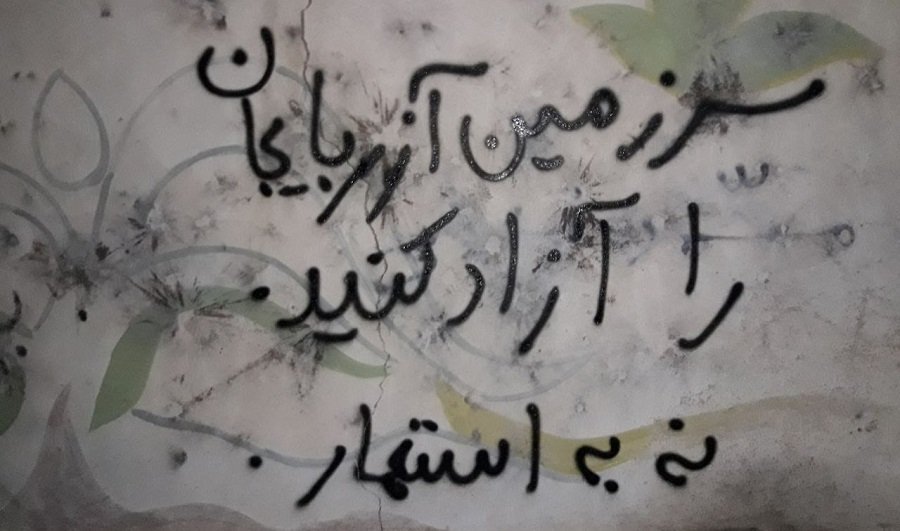 سرزمین آذربایجان
را آزاد کنید.
نه به استعمار.